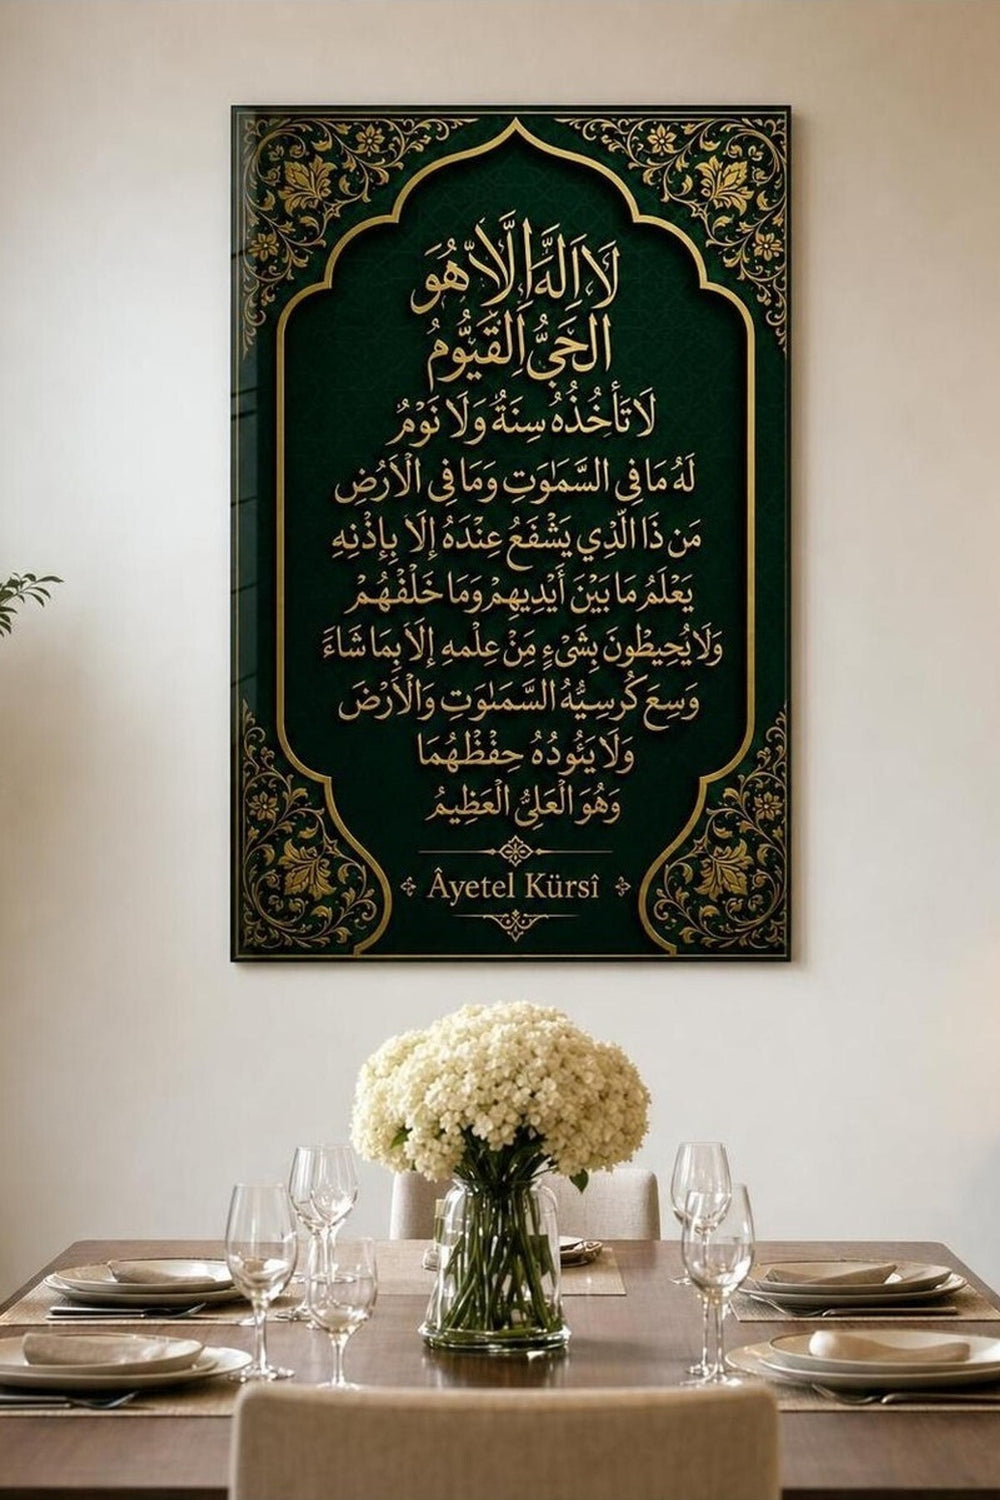 لَا اِلٰهَ اِلَّا هُوَ
الْحَيُّ الْقَيُّومُ
لَا تَأْخُذُهُ سِنَةٌ وَلَا نَوْمٌ
لَهُ مَا فِي السَّمٰوٰتِ وَمَا فِي الْاَرْضِ
مَن ذَا الَّذِي يَشْفَعُ عِنْدَهُ إِلَّا بِإِذْنِهِ
يَعْلَمُ مَا بَيْنَ أَيْدِيهِمْ وَمَا خَلْفَهُمْ
وَلَا يُحِيطُونَ بِشَيْءٍ مِّنْ عِلْمِهِ إِلَّا بِمَا شَاءَ
وَسِعَ كُرْسِيُّهُ السَّمٰوٰتِ وَالْأَرْضَ
وَلَا يَئُودُهُ حِفْظُهُمَا
وَهُوَ الْعَلِيُّ الْعَظِيمُ
Âyetel Kürsî